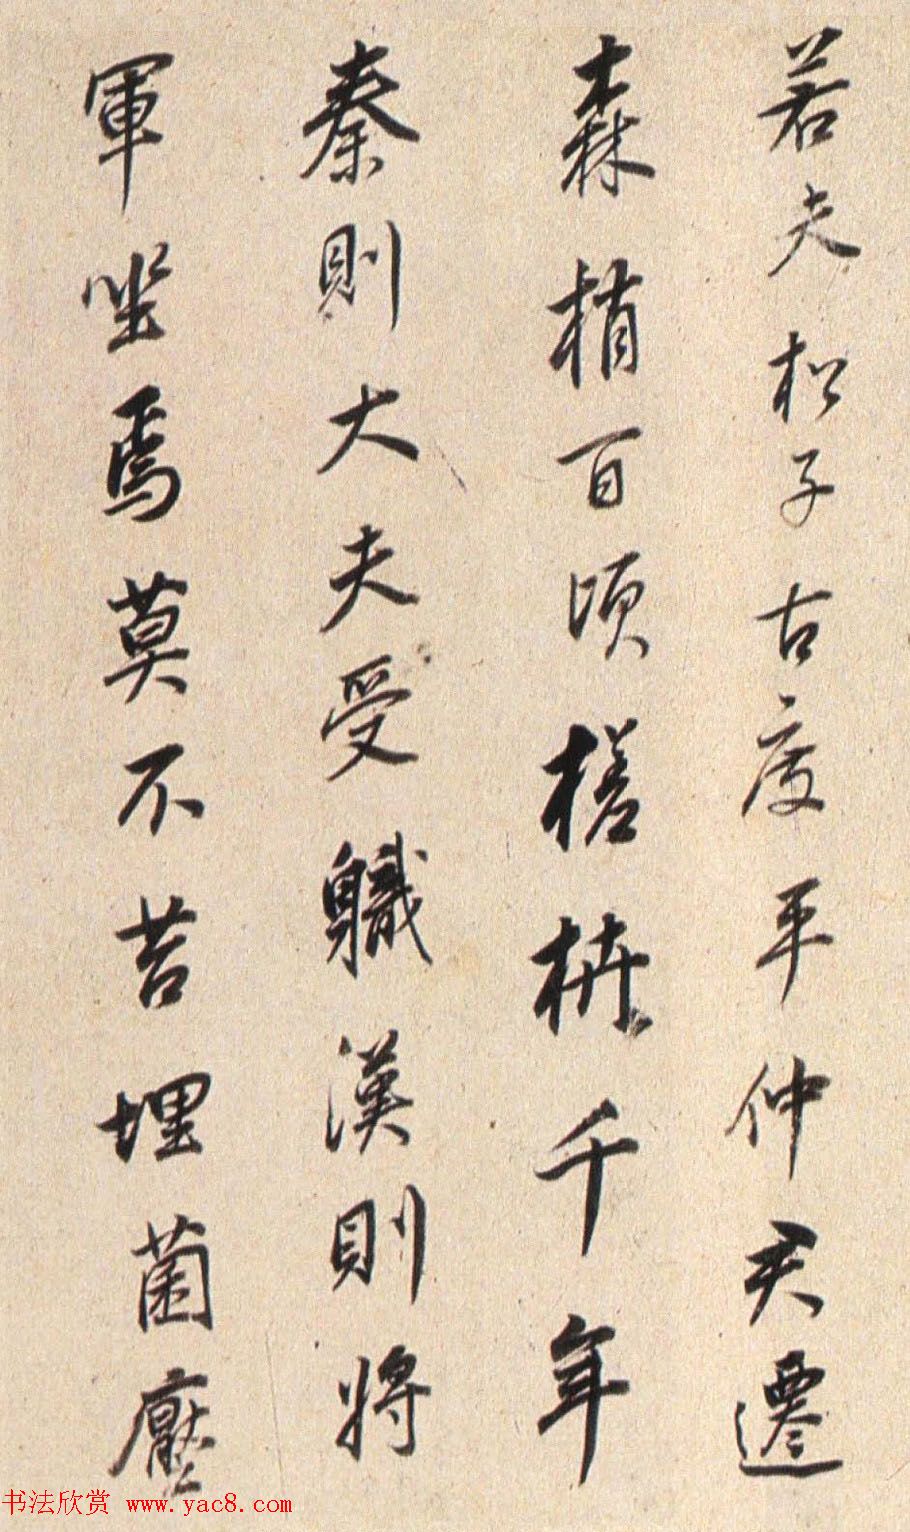 若夫松子古度平仲君遷
森梢百頃槎枿千年
秦則大夫受軄漢則將
軍坐焉莫不苔埋菌壓
书法欣赏 www.yac8.com